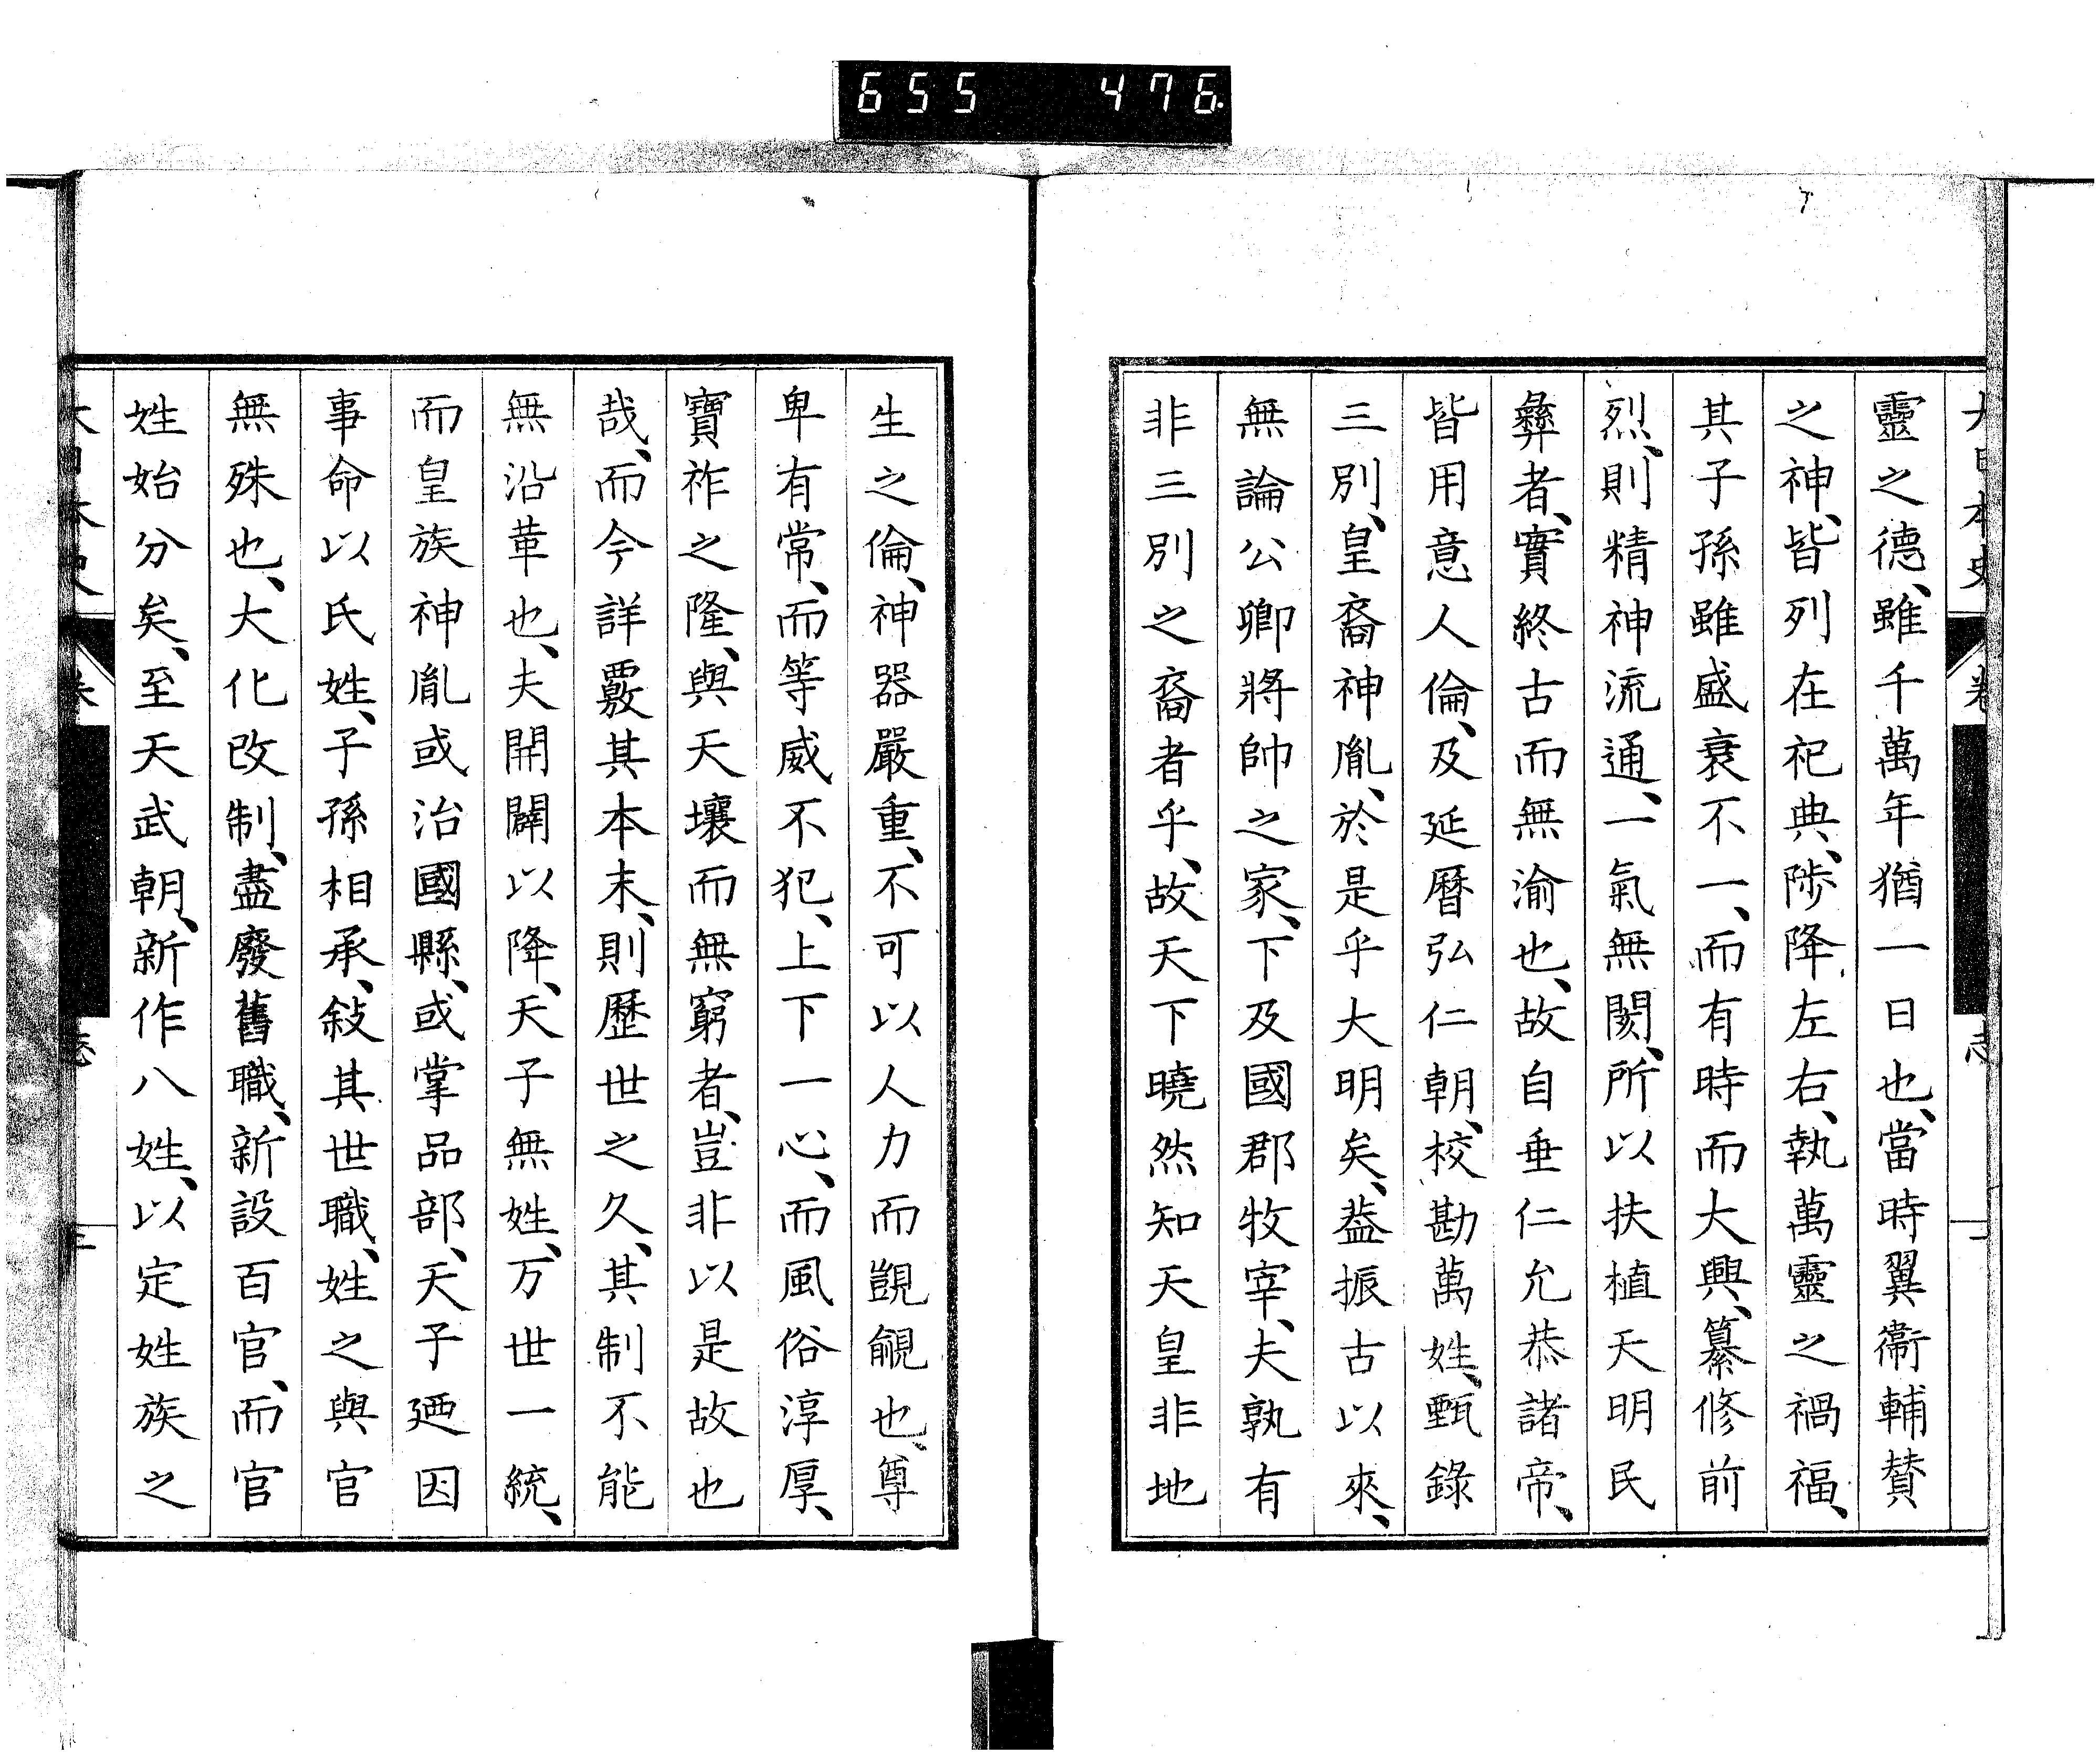 655 476
大日本史 卷 志
靈之德、雖千萬年猶一日也、當時翼衞輔贊
之神、皆列在祀典、陟降左右、執萬靈之禍福、
其子孫雖盛衰不一、而有時而大興、纂修前
烈、則精神流通、一氣無閡、所以扶植天明民
彝者、實終古而無渝也、故自垂仁允恭諸帝、
皆用意人倫、及延曆弘仁朝、校勘萬姓、甄錄
三別、皇裔神胤、於是乎大明矣、葢振古以來、
無論公卿將帥之家、下及國郡牧宰、夫孰有
非三別之裔者乎、故天下曉然知天皇非地
生之倫、神器嚴重、不可以人力而覬覦也、尊
卑有常、而等威不犯、上下一心、而風俗淳厚、
寶祚之隆、與天壤而無窮者、豈非以是故也
哉、而今詳覈其本末、則歷世之久、其制不能
無沿革也、夫開闢以降、天子無姓、万世一統、
而皇族神胤或治國縣、或掌品部、天子廼因
事命以氏姓、子孫相承、敍其世職、姓之與官
無殊也、大化改制、盡廢舊職、新設百官、而官
姓始分矣、至天武朝、新作八姓、以定姓族之
大日本史